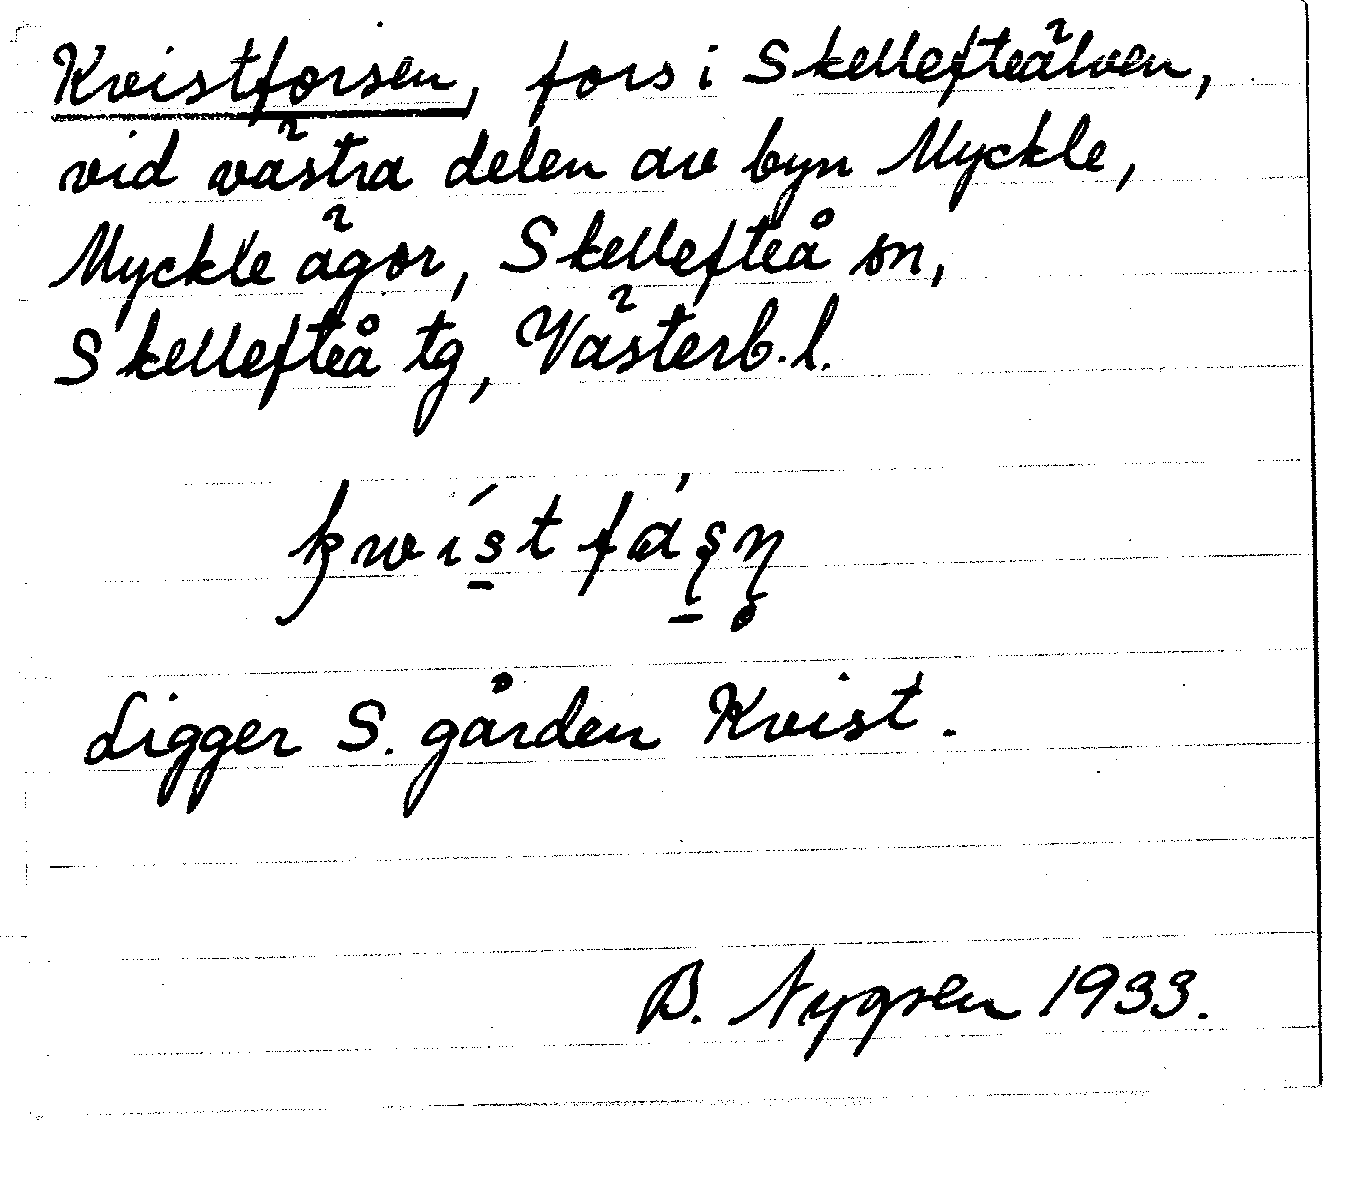 Kvistforsen, fors i Skellefteälven,
vid västra delen av byn Myckle,
Myckle ägor, Skellefteå sn,
Skellefteå tg, Västerb. l.
Ligger S. gården Kvist.
B. 1933.